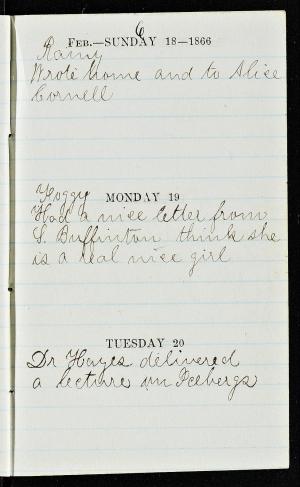 6
FEB.—SUNDAY 18—1866
Rainy
Wrote home and to Alice
Cornell
Foggy MONDAY 19
Had a nice letter from
S. Buffinton think she
is a real nice girl
TUESDAY 20
Dr Hayes delivered
a lecture on Icebergs